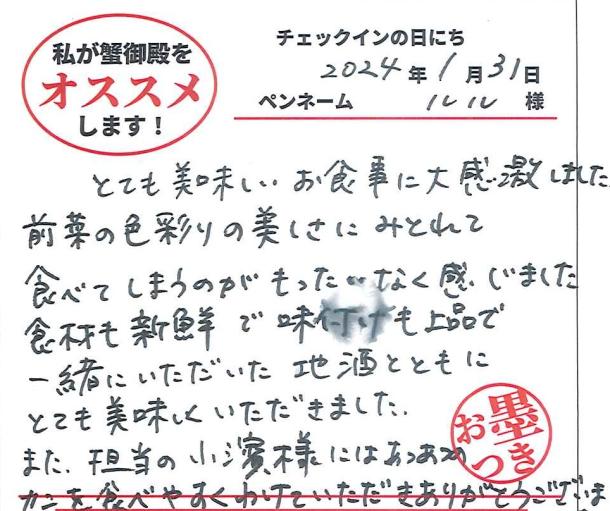 私が蟹御殿を
オススメ
します！
チェックインの日にち
2024年1月31日
ペンネーム ルル 様
とても美味しいお食事に大感激しました
前菜の色彩りの美しさにみとれて
食べてしまうのがもったいなく感じました
食材も新鮮で味付けも上品で
一緒にいただいた地酒とともに
とても美味しくいただきました.
また、担当の小濱様にはあつあつの
カニを食べやすくわけていただきありがとうございま
お墨つき